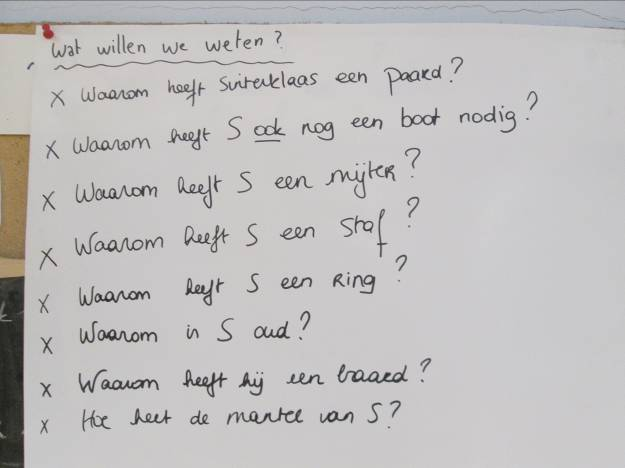 Wat willen we weten?
X Waarom heeft Sinterklaas een paard?
X Waarom heeft S ook nog een boot nodig?
X Waarom heeft S een mijter?
X Waarom heeft S een staf?
X Waarom heeft S een Ring?
X Waarom is S oud?
X Waarom heeft hij een baard?
X Hoe heet de mantel van S?